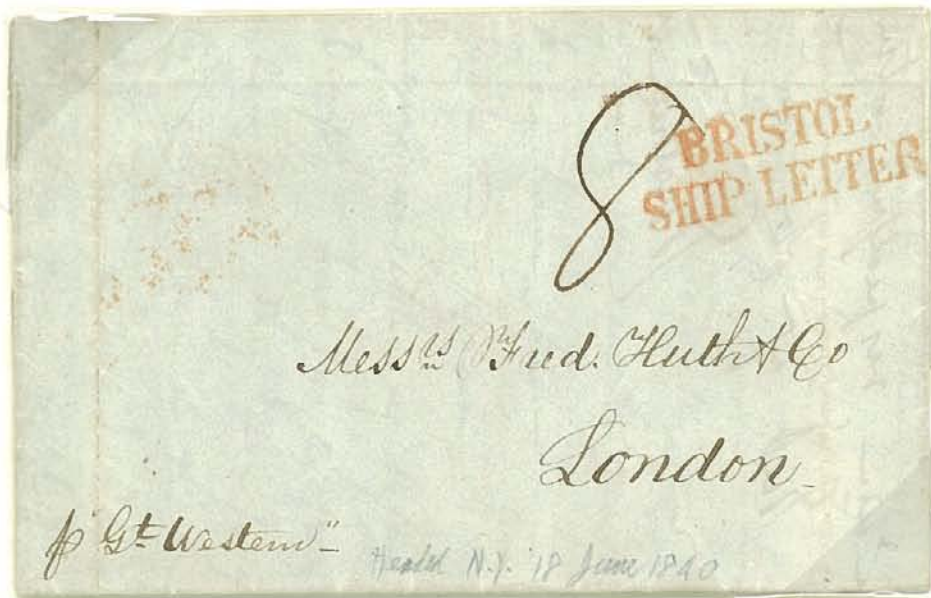 8
BRISTOL
SHIP LETTER
Mess.rs Fred. Huth & Co
London
p Gt. Western"
N.Y. 18 June 1840